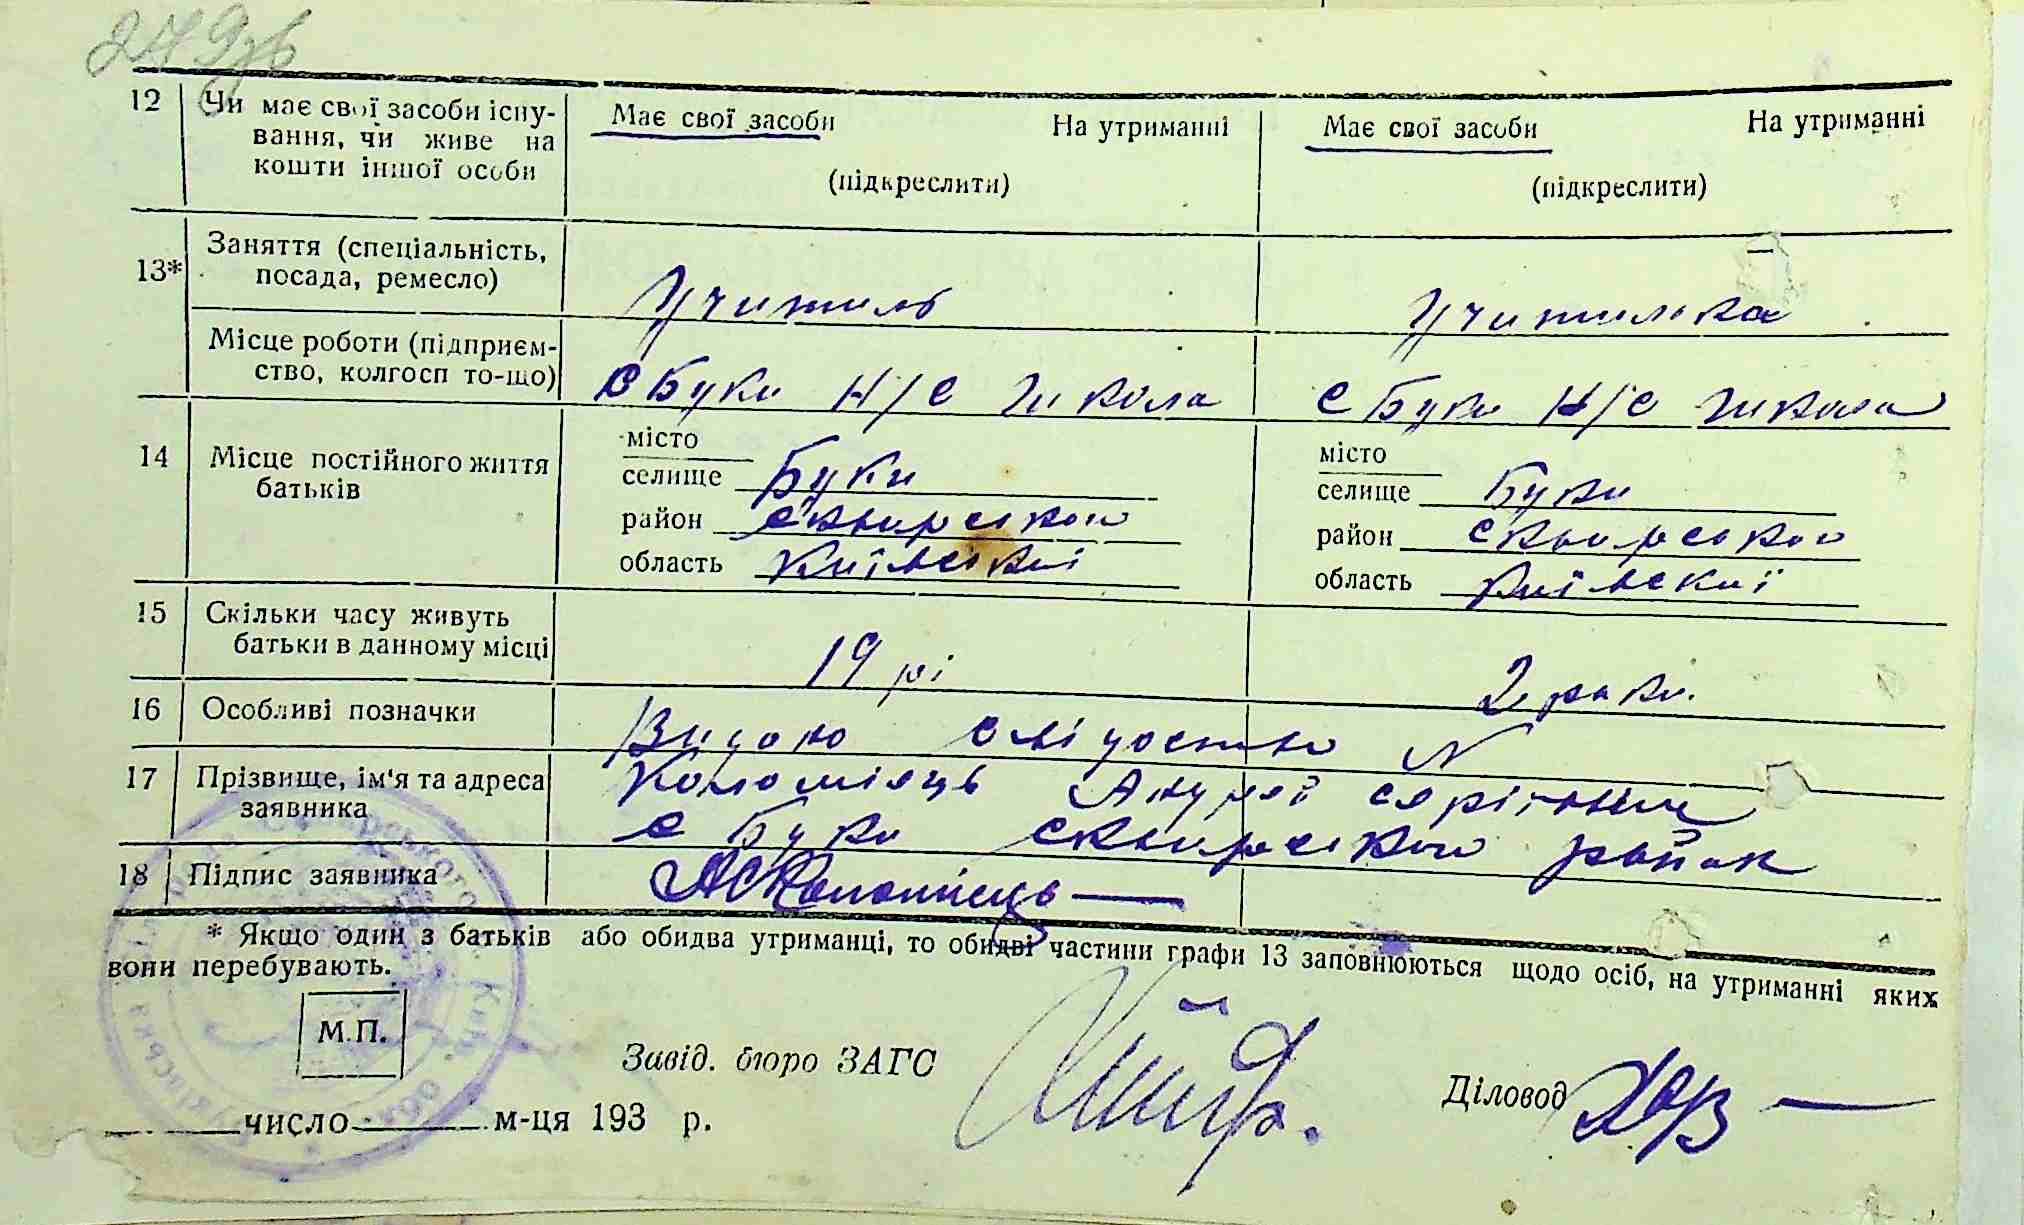 279зв
12 Чи має свої засоби існу-
вання, чи живе на
кошти іншої особи
Має свої засоби На утриманні
(підкреслити)
Має свої засоби На утриманні
(підкреслити)
13* Заняття (спеціальність,
посада, ремесло)
Учитиль
Учитилька
Місце роботи (підприєм-
ство, колгосп то-що)
с Буки Н/С школа
с Буки Н/С школа
14 Місце постійного життя
батьків
місто
селище Буки
район сквирського
область Київської
місто
селище Буки
район сквирського
область Київскиї
15 Скільки часу живуть
батьки в данному місці
19 рі
2 роки.
16 Особливі позначки
Видано свідоство N
17 Прізвище, ім'я та адреса
заявника
Коломієць Андрей
с Буки сквирського район
18 Підпис заявника
АСКоломієць
* Якщо один з батьків або обидва утриманці, то обидві частини графи 13 заповнюються щодо осіб, на утриманні яких
вони перебувають.
М.П.
Завід. бюро ЗАГС
Діловод
число м-ця 193 р.